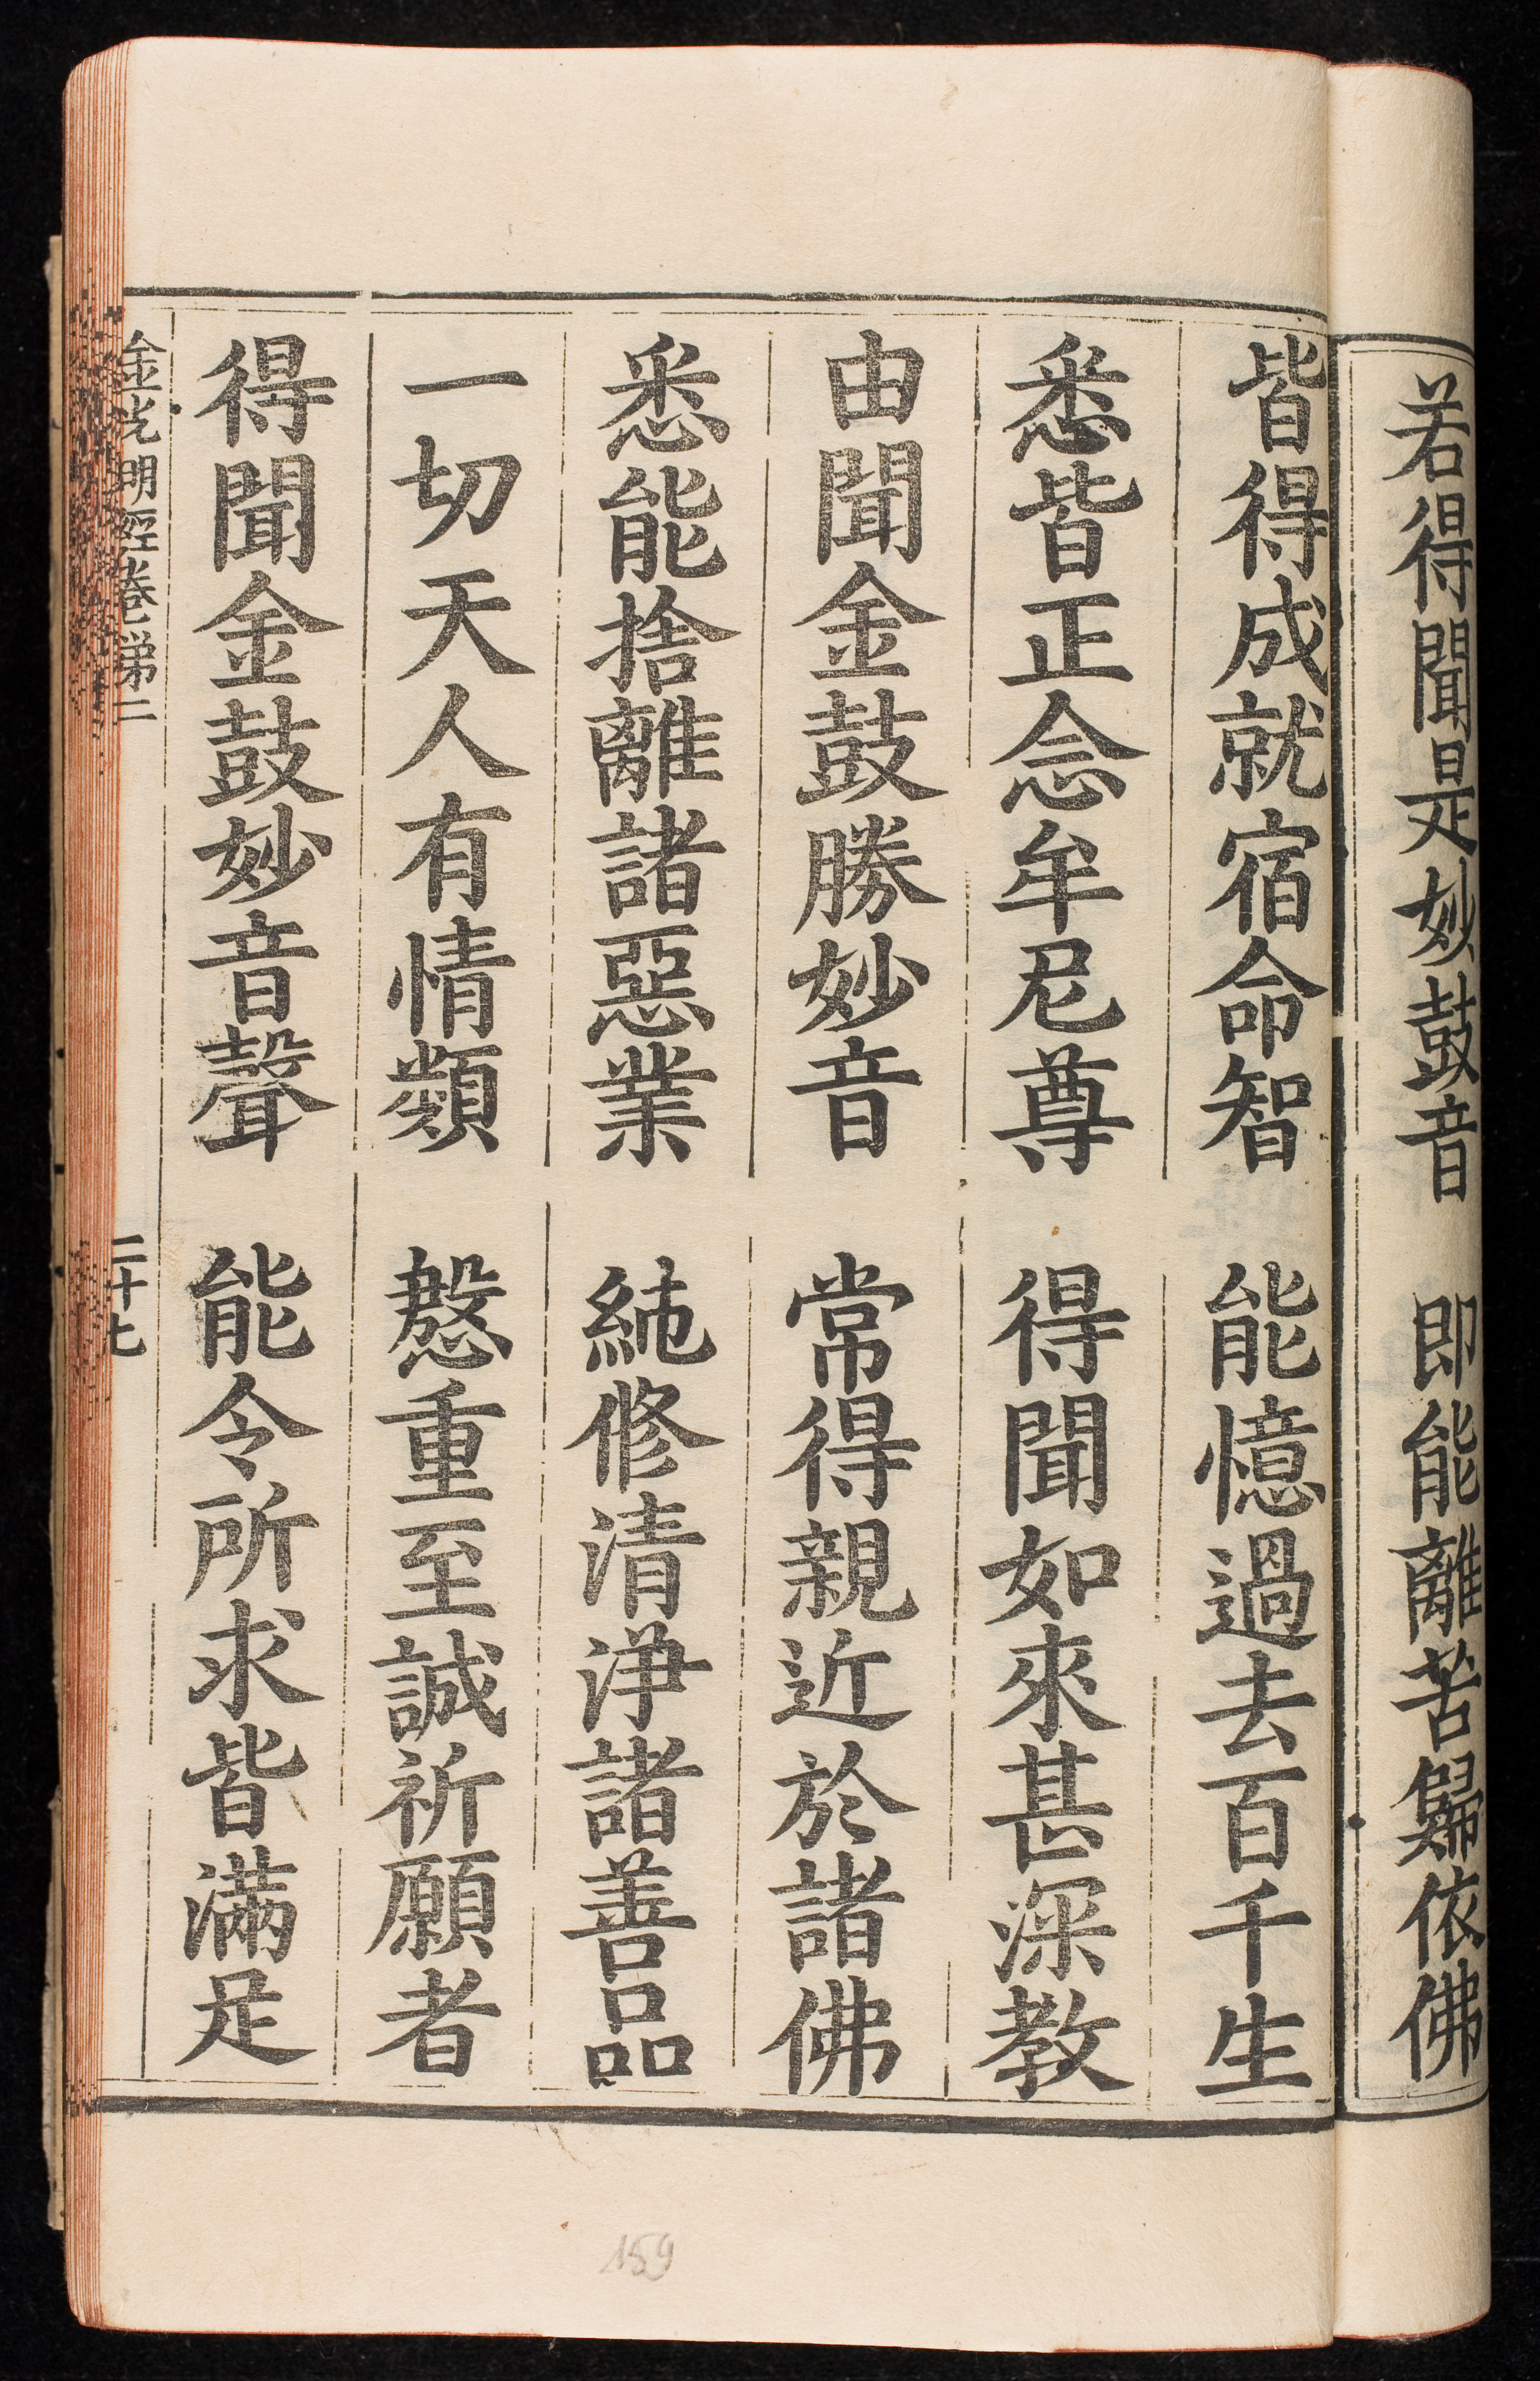 若得聞是妙鼓音　即能離苦歸依佛
皆得成就宿命智　能憶過去百千生
悉皆正念牟尼尊　得聞如來甚深教
由聞金鼓勝妙音　常得親近於諸佛
悉能捨離諸惡業　純修清淨諸善品
一切天人有情類　慇重至誠祈願者
得聞金鼓妙音聲　能令所求皆滿足
金光明經卷第二　二十七
159